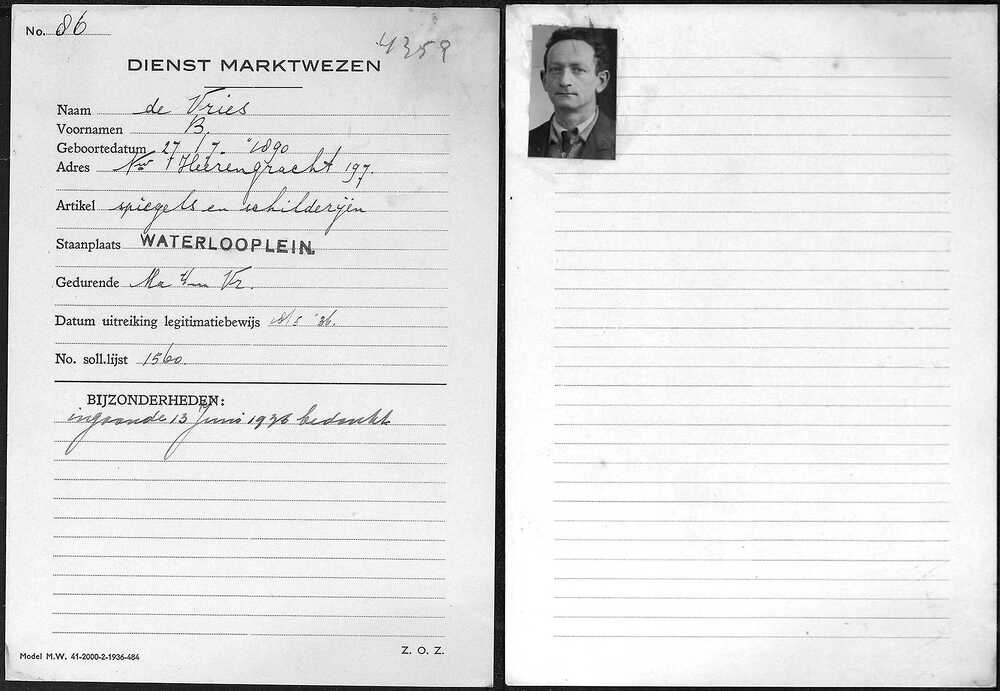 No. 86
4359
DIENST MARKTWEZEN
Naam de Vries
Voornamen B.
Geboortedatum 27/7. 1890
Adres Nw Heerengracht 197.
Artikel spiegels en schilderijen
Staanplaats WATERLOOPLEIN.
Gedurende Ma t/m Vr.
Datum uitreiking legitimatiebewijs 18/5 '36.
No. soll.lijst 1560.
BIJZONDERHEDEN:
ingaande 13 Juni 1936 bedankt
Model M.W. 41-2000-2-1936-484
Z. O. Z.